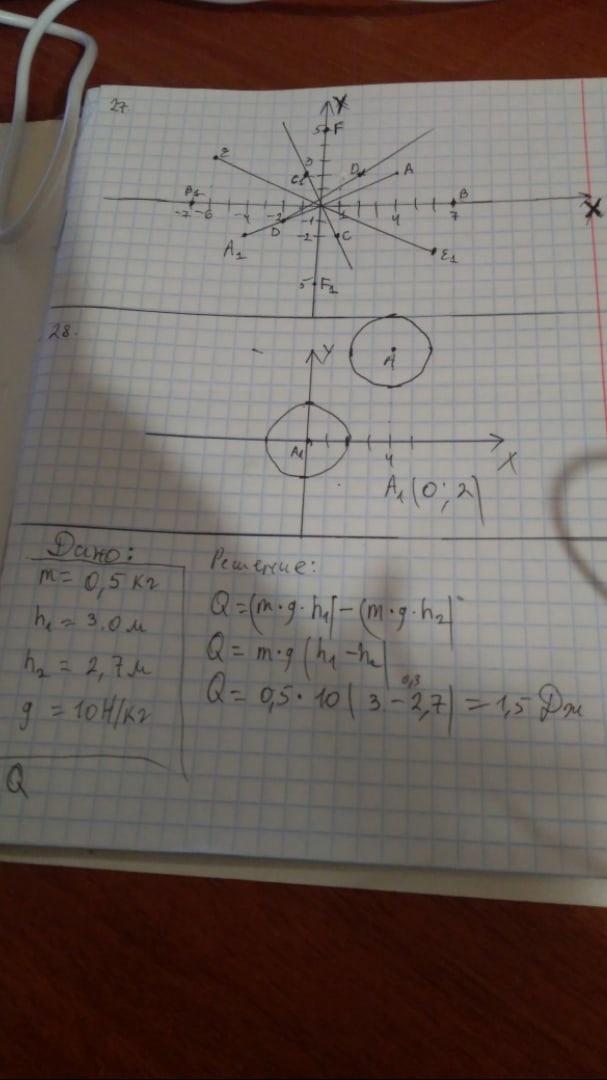 27.
Y
5 F
E
3
C1 D1 A
B1 B
-7 -6 -4 -2 1 4 7 X
D -1
A1 -2 C E1
5 F1
28.
A
Y
A1 4 X
A1(0; 2)
Дано:
m = 0,5 кг
h1 = 3.0 м
h2 = 2,7 м
g = 10 Н/кг
Q
Решение:
Q = (m·g·h1) - (m·g·h2)
Q = m·g (h1 - h2)
0,3
Q = 0,5·10 (3 - 2,7) = 1,5 Дж